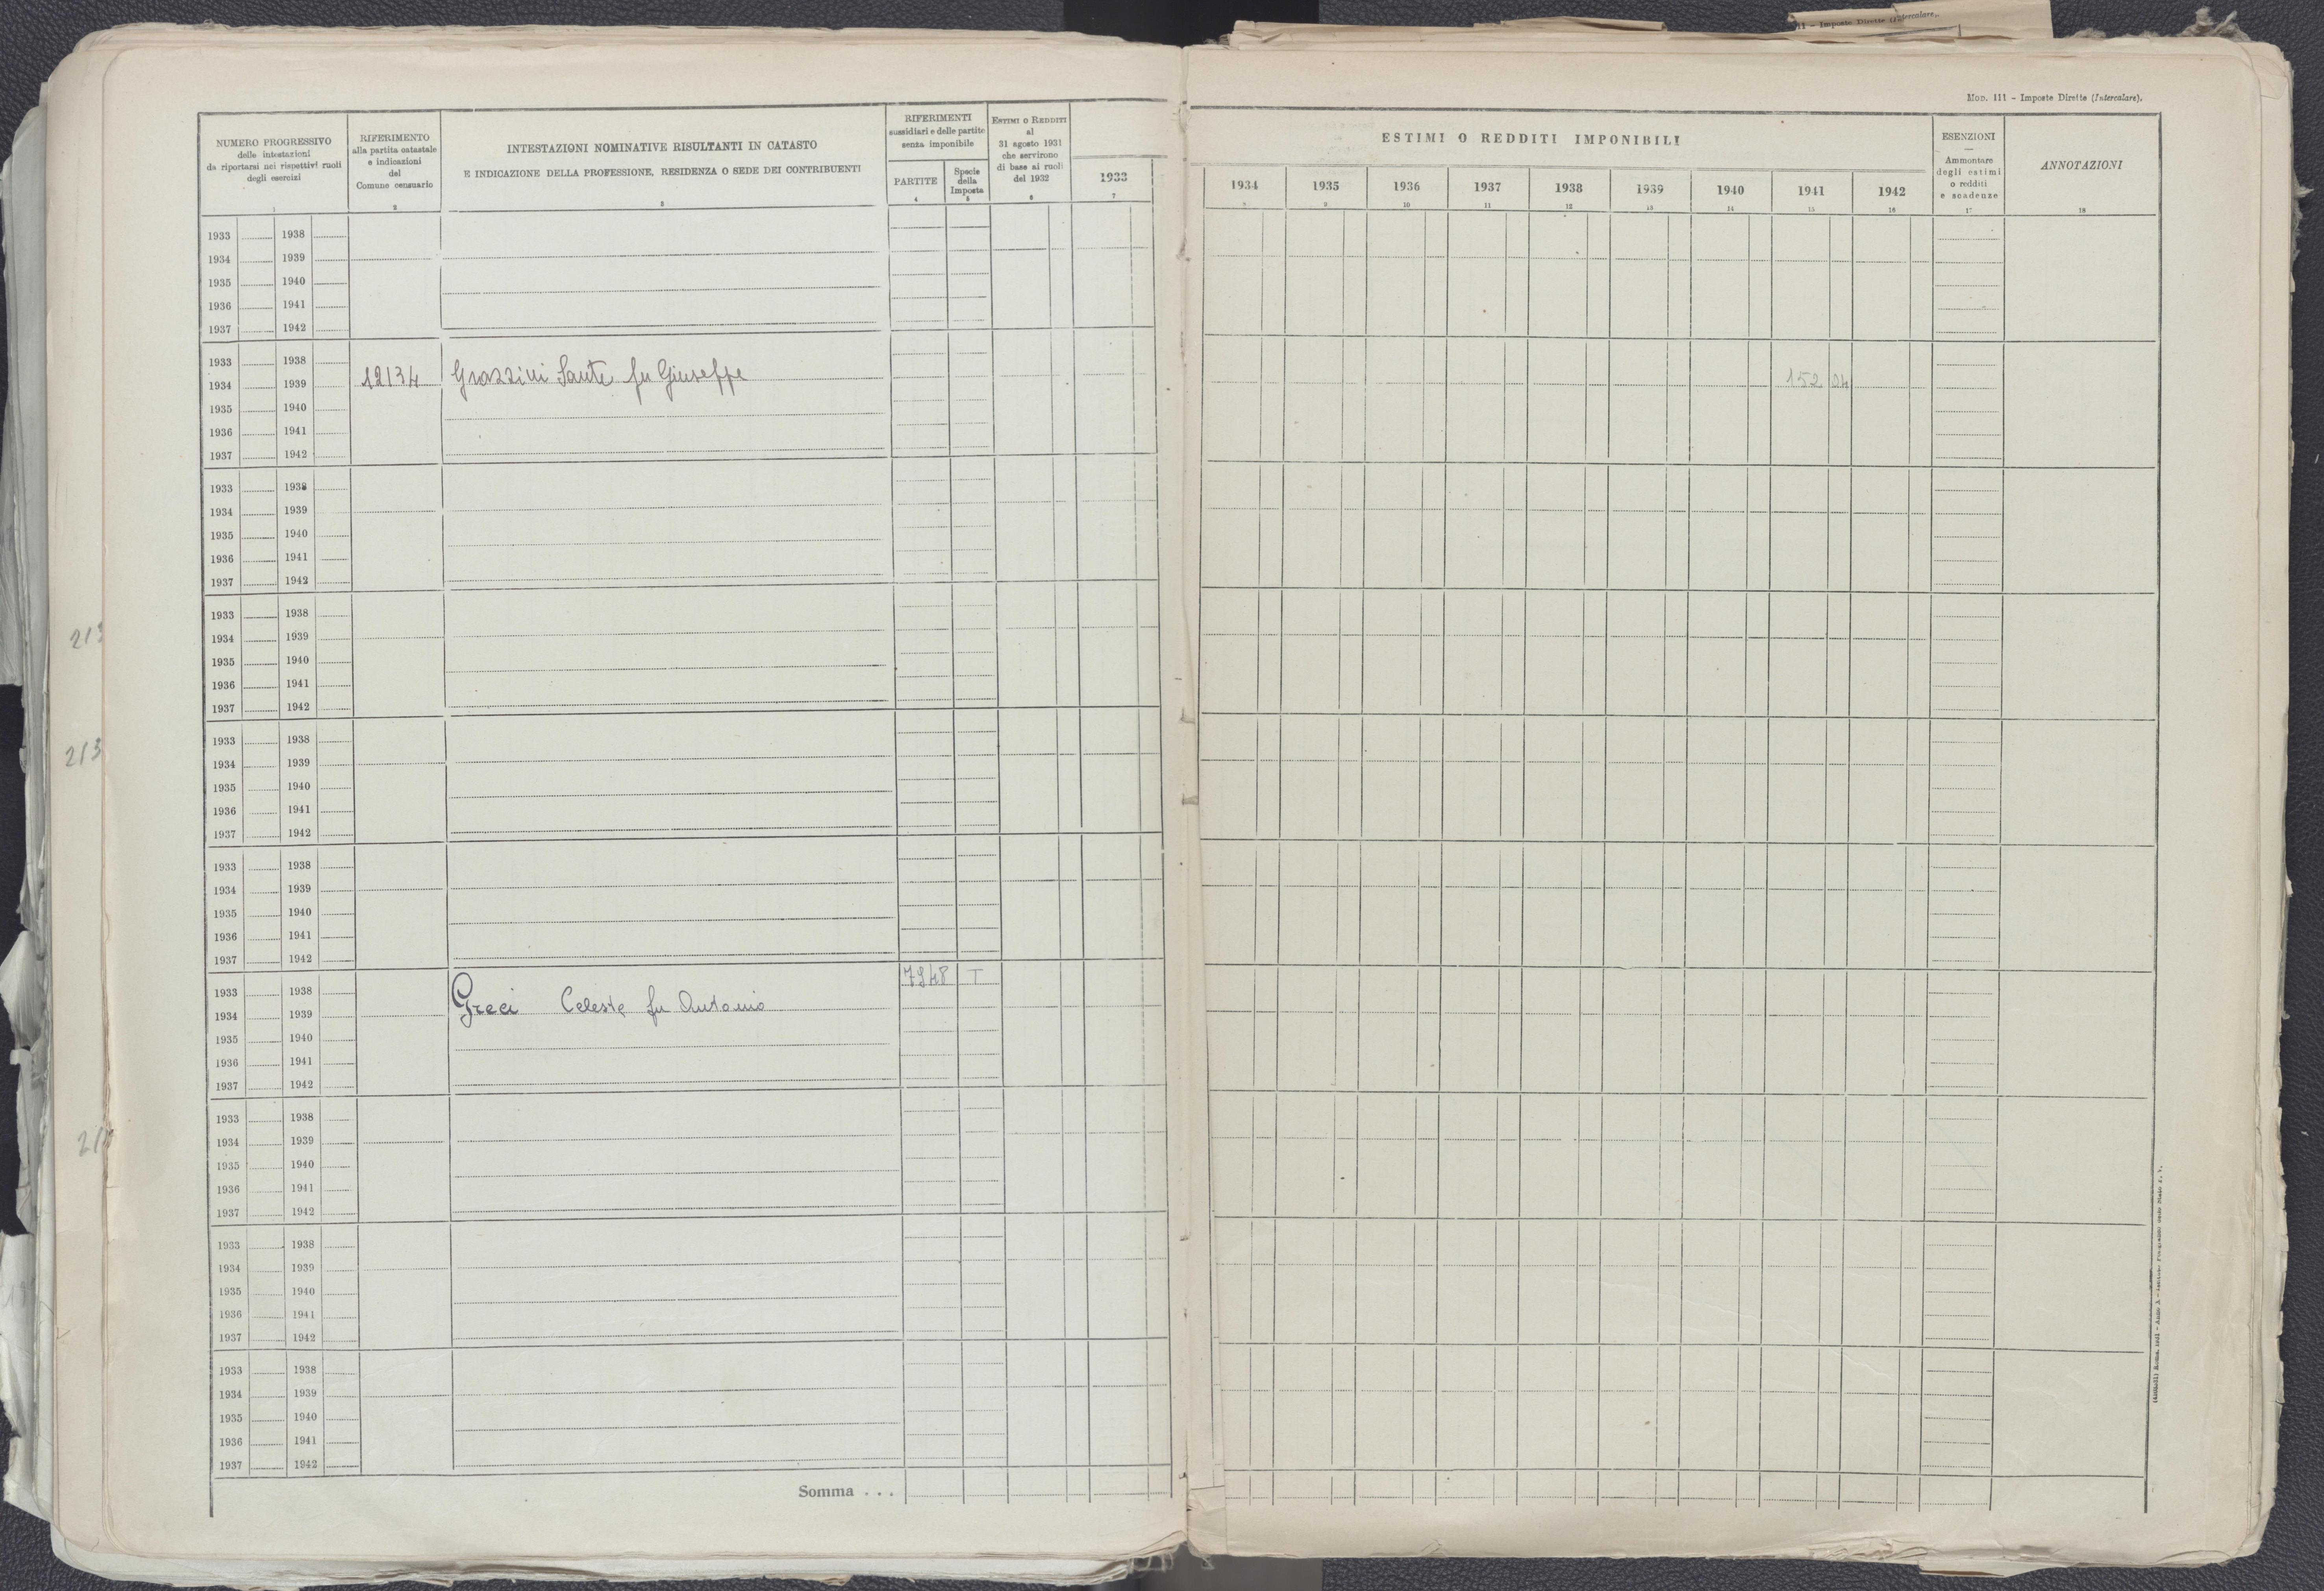 111 - Imposte Dirette (Intercalare.
MOD. 111 - Imposte Dirette (Intercalare).
NUMERO PROGRESSIVO
delle intestazioni
da riportarsi nei rispettivi ruoli
degli esercizi
1
RIFERIMENTO
alla partita catastale
e indicazioni
del
Comune censuario
2
INTESTAZIONI NOMINATIVE RISULTANTI IN CATASTO
E INDICAZIONE DELLA PROFESSIONE, RESIDENZA O SEDE DEI CONTRIBUENTI
3
RIFERIMENTI
sussidiari e delle partite
senza imponibile
PARTITE
4
Specie
della
Imposta
5
ESTIMI O REDDITI
al
31 agosto 1931
che servirono
di base ai ruoli
del 1932
6
1933
7
ESTIMI O REDDITI IMPONIBILI
1934 1935 1936 1937 1938 1939 1940 1941 1942
8 9 10 11 12 13 14 15 16
ESENZIONI
—
Ammontare
degli estimi
o redditi
e scadenze
17
ANNOTAZIONI
18
1933 1938
1934 1939
1935 1940
1936 1941
1937 1942
1933 1938
1934 1939 12134 Grazzini Sante fu Giuseppe 152 04
1935 1940
1936 1941
1937 1942
1933 1938
1934 1939
1935 1940
1936 1941
1937 1942
1933 1938
213
1934 1939
1935 1940
1936 1941
1937 1942
1933 1938
213
1934 1939
1935 1940
1936 1941
1937 1942
1933 1938
1934 1939
1935 1940
1936 1941
1937 1942
7948 T
1933 1938
1934 1939 Greci Celeste fu Antonio
1935 1940
1936 1941
1937 1942
1933 1938
1934 1939
1935 1940
1936 1941
1937 1942
1933 1938
1934 1939
1935 1940
1936 1941
1937 1942
1933 1938
1934 1939
1935 1940
1936 1941
1937 1942
Somma . . .